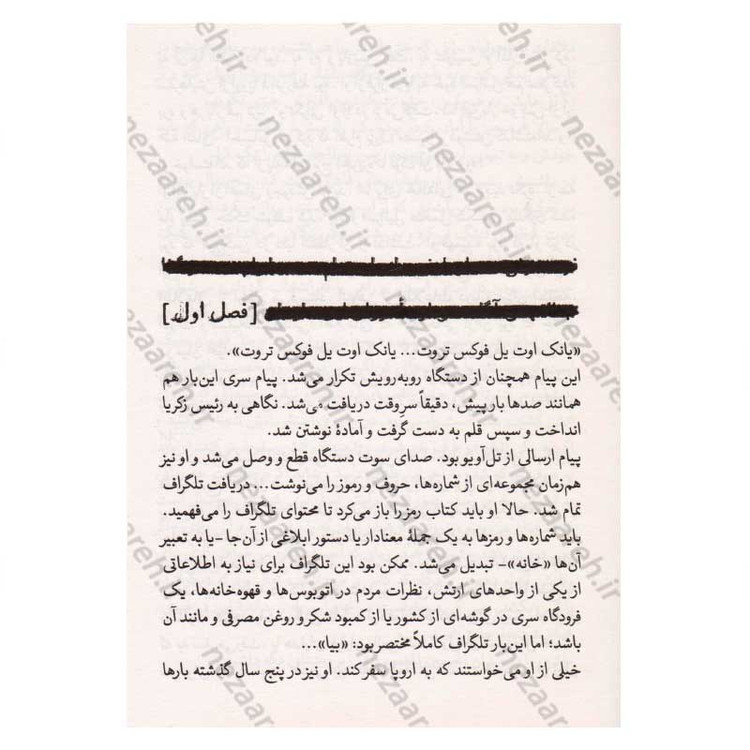 [فصل اول]
«یانک اوت یل فوکس تروت... یانک اوت یل فوکس تروت».
این پیام همچنان از دستگاه روبه‌رویش تکرار می‌شد. پیام سری این‌بار هم
همانند صدها بار پیش، دقیقاً سرِوقت دریافت می‌شد. نگاهی به رئیس زکریا
انداخت و سپس قلم به دست گرفت و آمادهٔ نوشتن شد.
پیام ارسالی از تل‌آویو بود. صدای سوت دستگاه قطع و وصل می‌شد و او نیز
هم‌زمان مجموعه‌ای از شماره‌ها، حروف و رموز را می‌نوشت... دریافت تلگراف
تمام شد. حالا او باید کتاب رمز را باز می‌کرد تا محتوای تلگراف را می‌فهمید.
باید شماره‌ها و رمزها به یک جملهٔ معنادار یا دستور ابلاغی از آن‌جا -یا به تعبیر
آن‌ها «خانه»- تبدیل می‌شد. ممکن بود این تلگراف برای نیاز به اطلاعاتی
از یکی از واحدهای ارتش، نظرات مردم در اتوبوس‌ها و قهوه‌خانه‌ها، یک
فرودگاه سری در گوشه‌ای از کشور یا از کمبود شکر و روغن مصرفی و مانند آن
باشد؛ اما این‌بار تلگراف کاملاً مختصر بود: «بیا»...
خیلی از او می‌خواستند که به اروپا سفر کند. او نیز در پنج سال گذشته بارها
nezaareh.ir